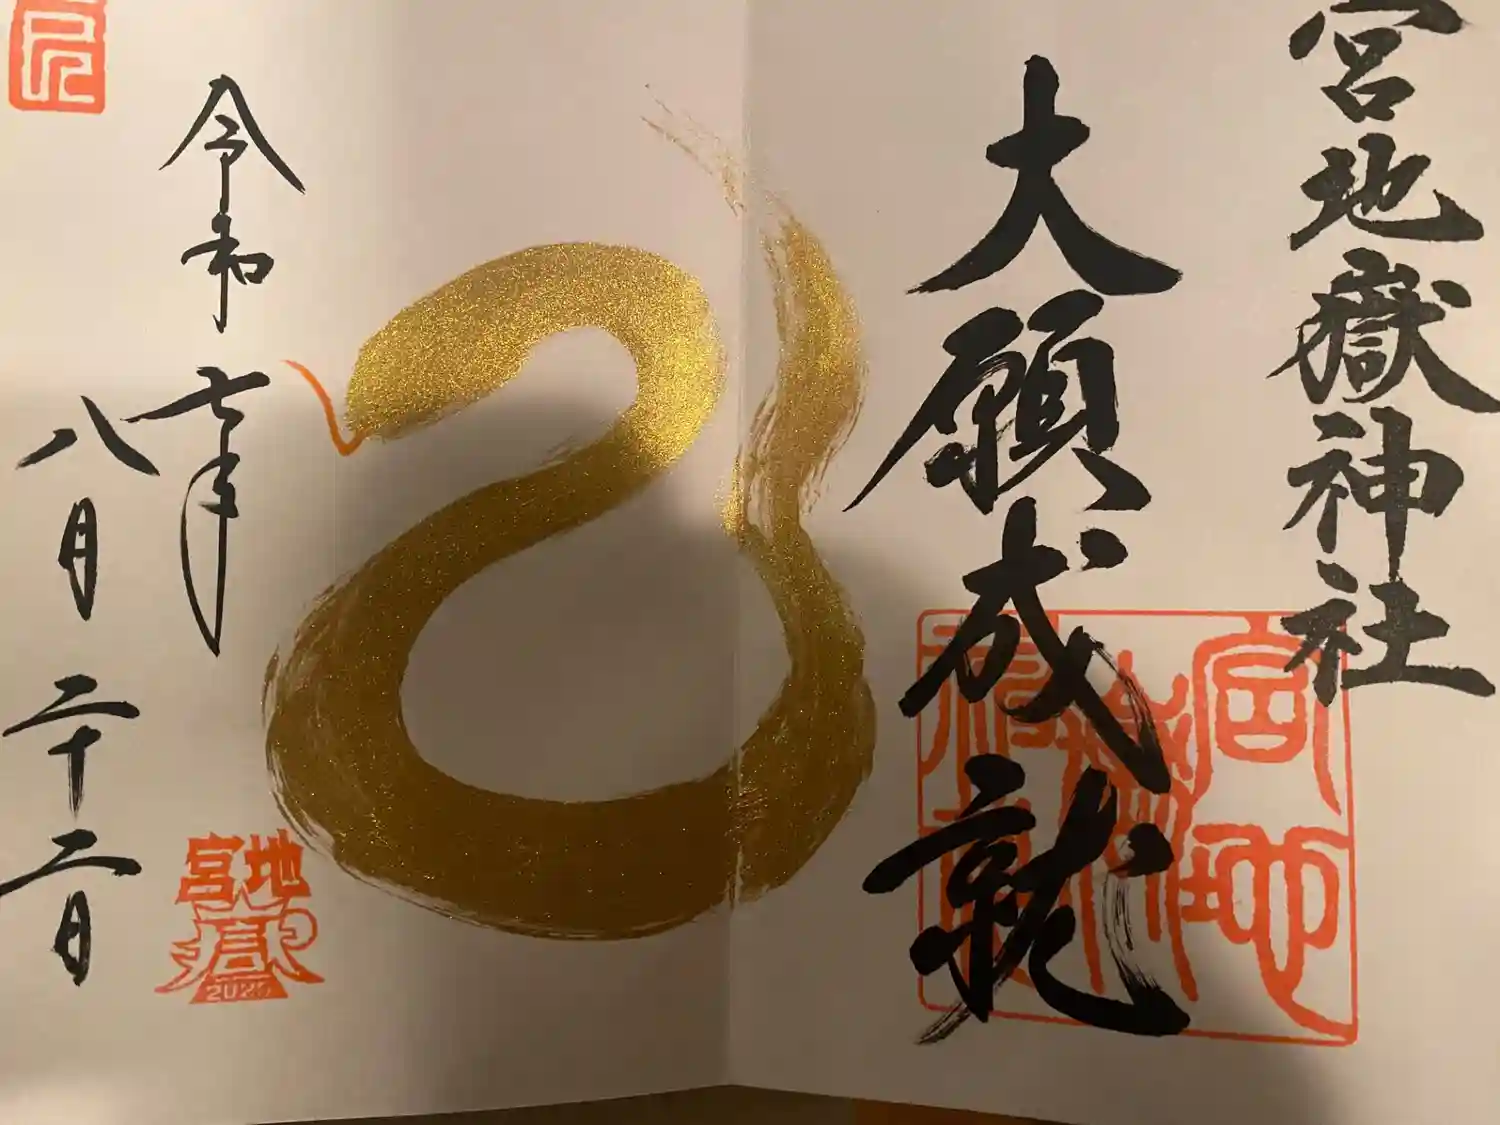 宮地嶽神社
大願成就
宮地嶽神社
巳
令和七年
八月二十二日
宮地嶽
2025